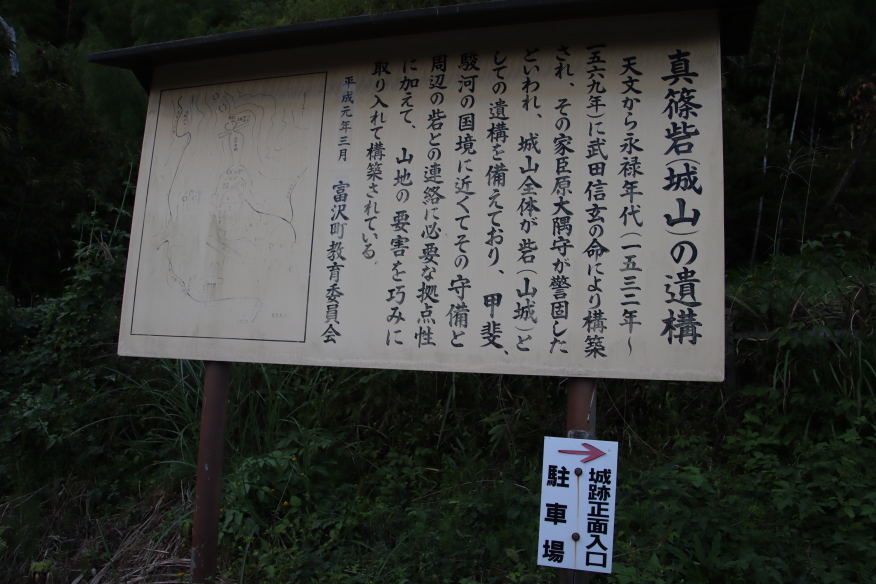 真篠砦(城山)の遺構
天文から永禄年代(一五三二年~
一五六九年)に武田信玄の命により構築
され、その家臣原大隅守が警固した
といわれ、城山全体が砦(山城)と
しての遺構を備えており、甲斐、
駿河の国境に近くてその守備と
周辺の砦との連絡に必要な拠点性
に加えて、山地の要害を巧みに
取り入れて構築されている。
平成元年三月 富沢町教育委員会
城跡正面入口
駐車場